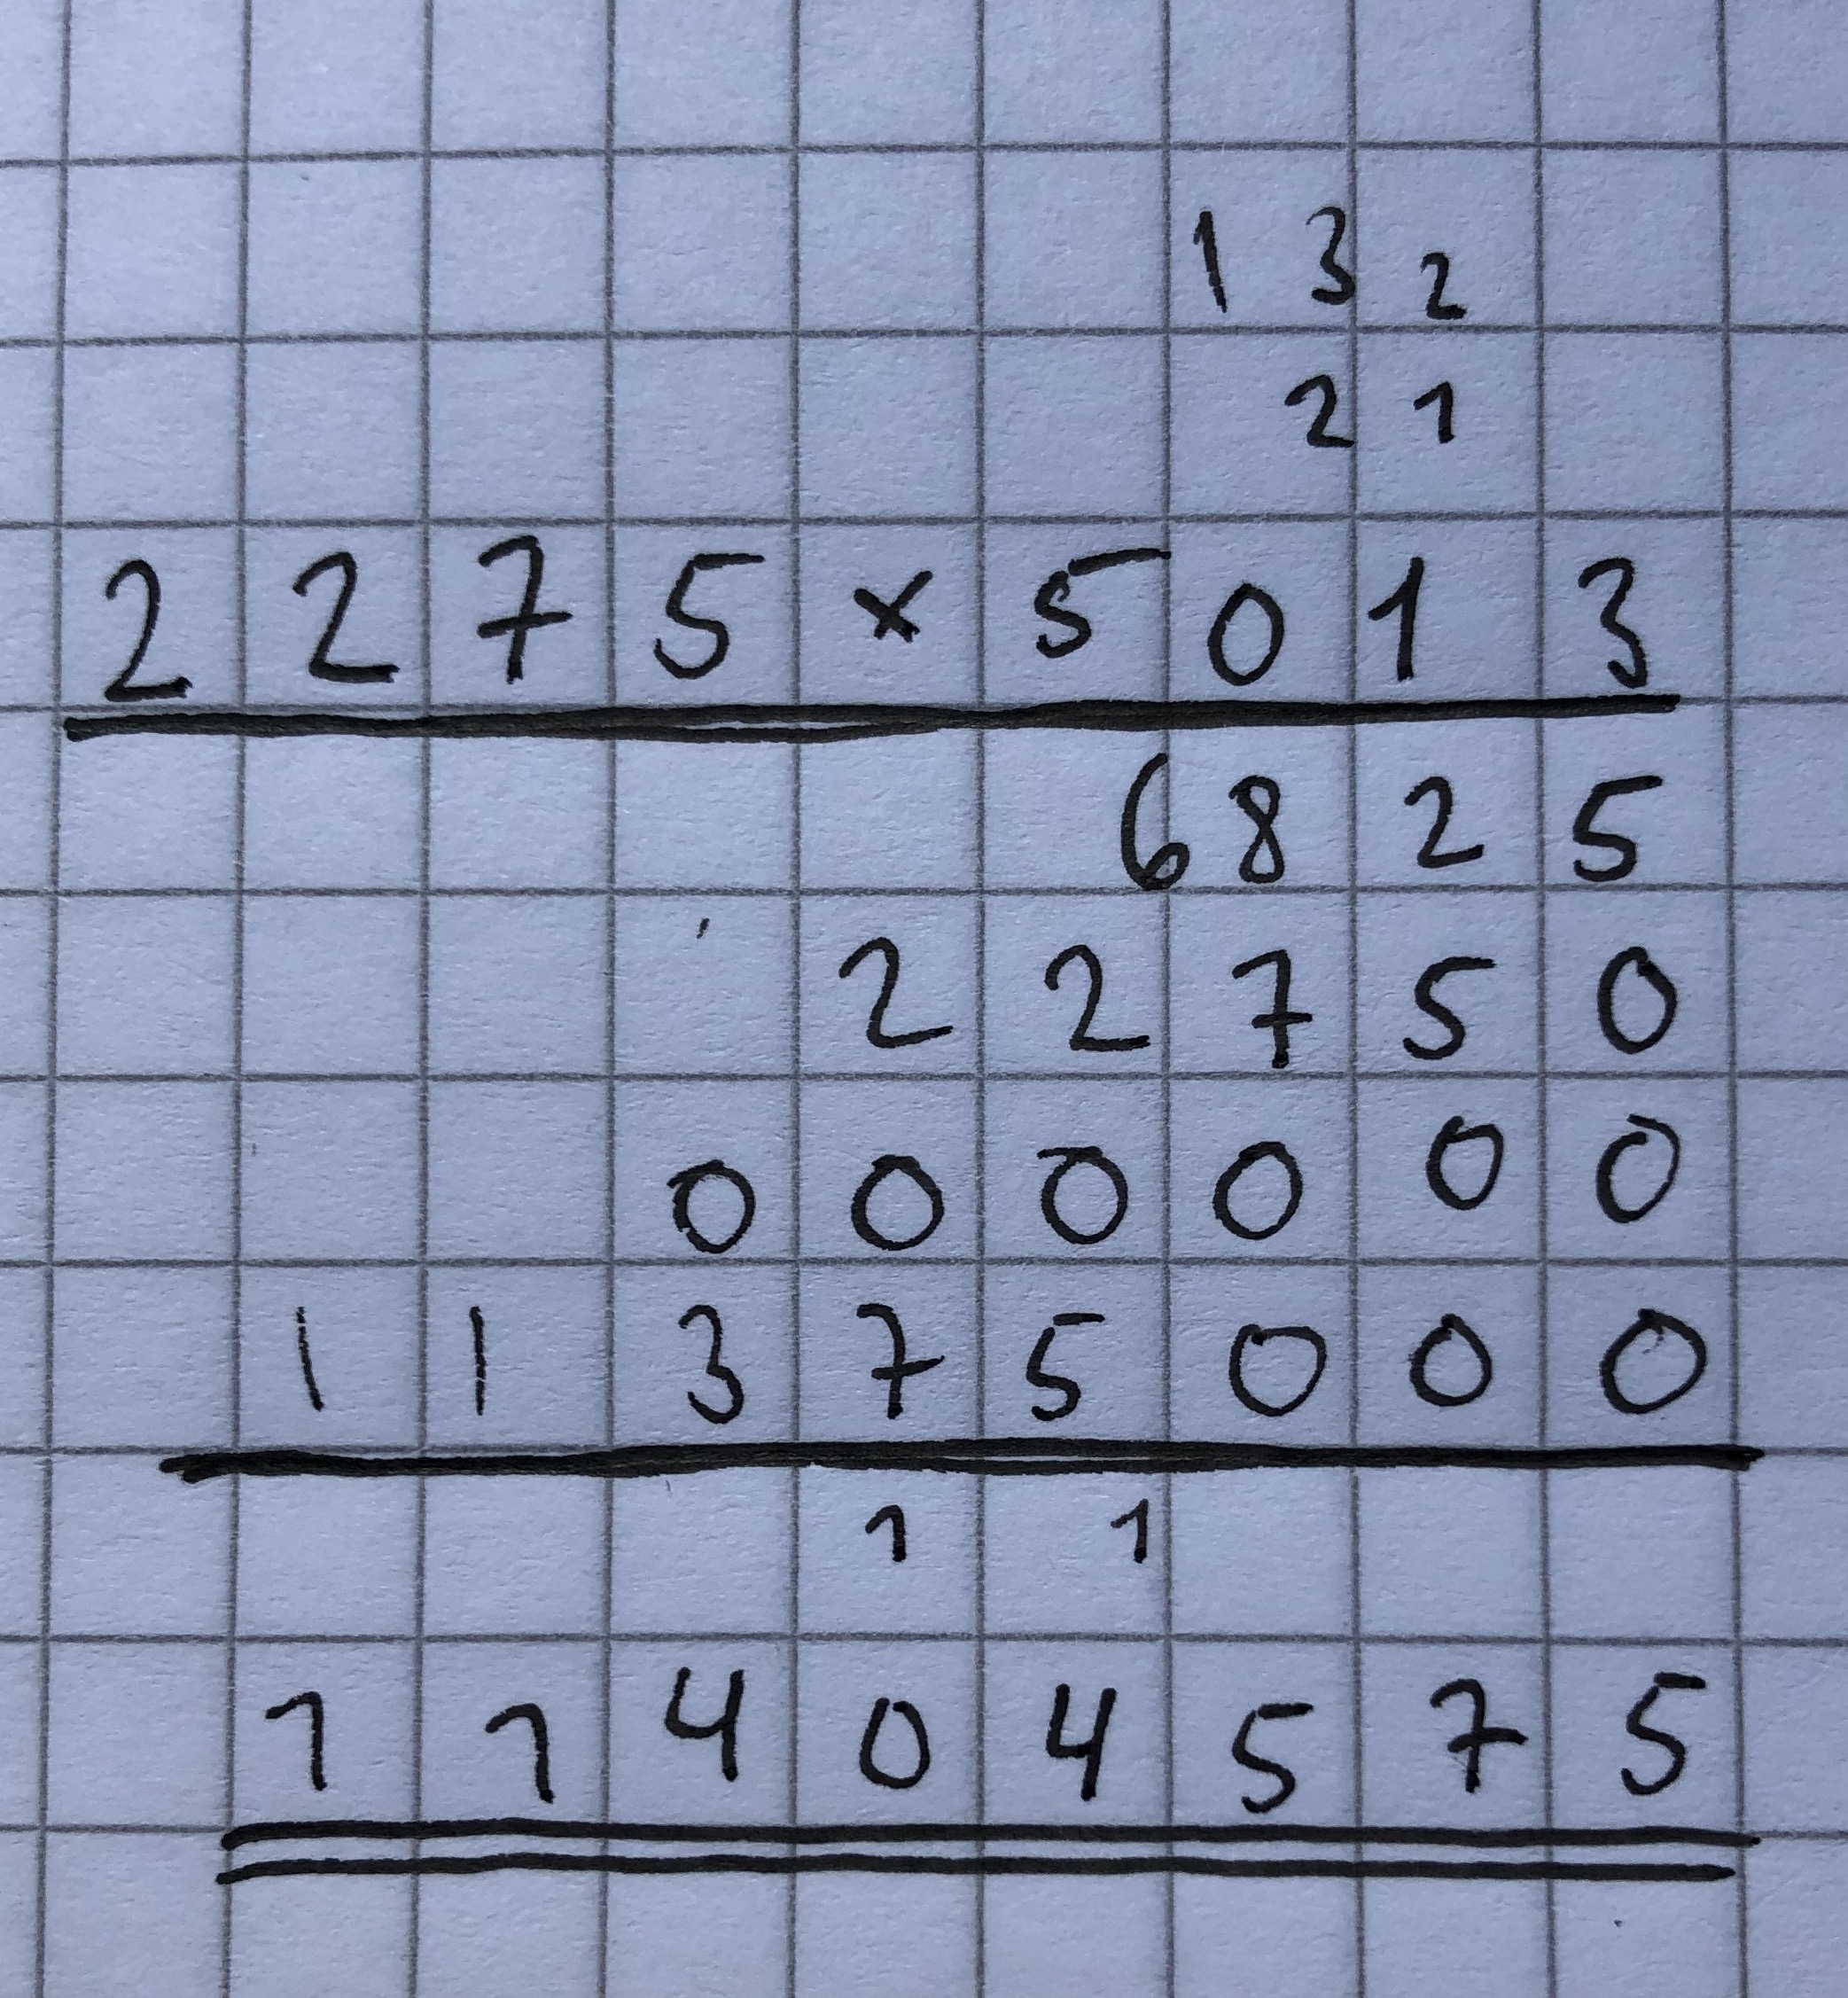 1 3 2
2 1
2 2 7 5 × 5 0 1 3
6 8 2 5
2 2 7 5 0
0 0 0 0 0 0
1 1 3 7 5 0 0 0
1 1
1 1 4 0 4 5 7 5